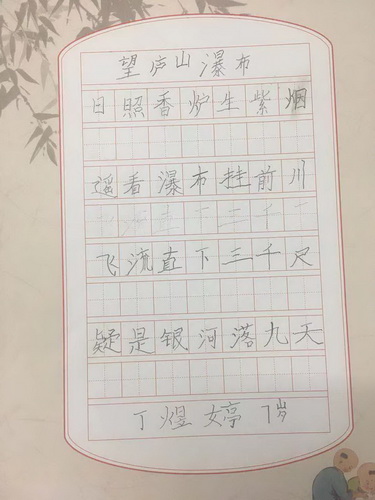 望庐山瀑布
日照香炉生紫烟
遥看瀑布挂前川
飞流直下三千尺
疑是银河落九天
丁煜婷 7岁